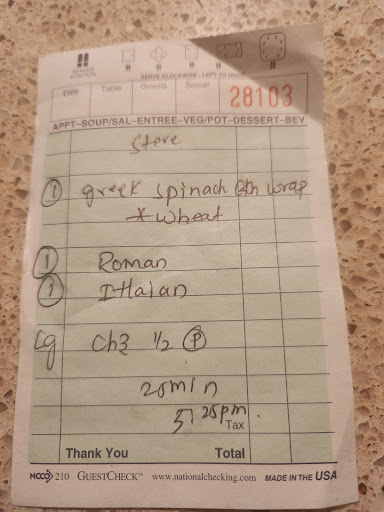 SERVER POSITION
SERVE CLOCKWISE - LEFT TO RIGHT
Date Table Guests Server
28103
APPT-SOUP/SAL-ENTREE-VEG/POT-DESSERT-BEV
Steve
① greek spinach wrap
*wheat
① Roman
① Ittalan
Lg Chz 1/2 Ⓟ
20min
5:25pm.
Tax
Thank You Total
NCCO 210 GUESTCHECK™ www.nationalchecking.com MADE IN THE USA